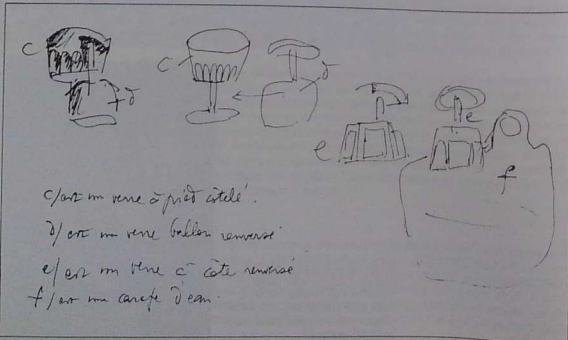 c
d
c
d
e
e
f
c/ est un verre à pied côtelé.
d/ est un verre ballon renversé
e/ est un verre à côte renversé
f/ est une carafe d'eau.